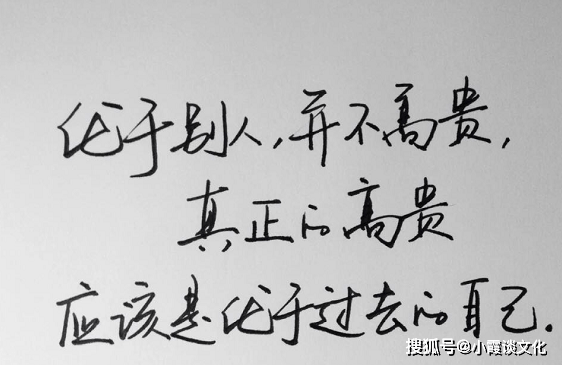 优于别人,并不高贵,
真正的高贵
应该是优于过去的自己.
搜狐号@小霞谈文化